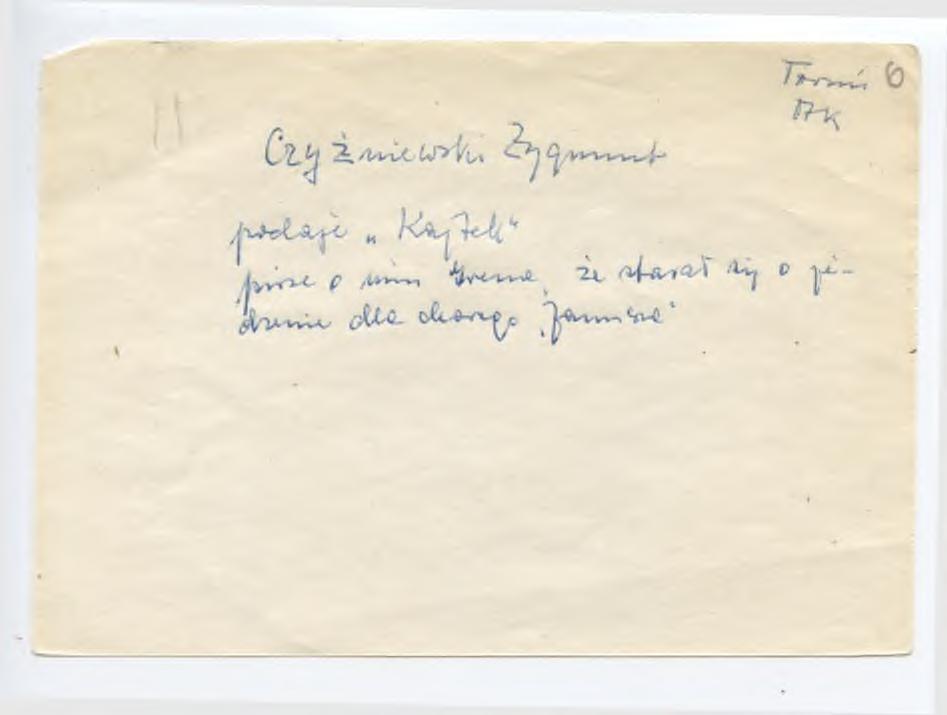 Toruń 6
AK
Czyżniewski Zygmunt
podaje „Kajtek"
pisze o nim Irena, że starał się o je-
dzenie dla chorego „Janusza"